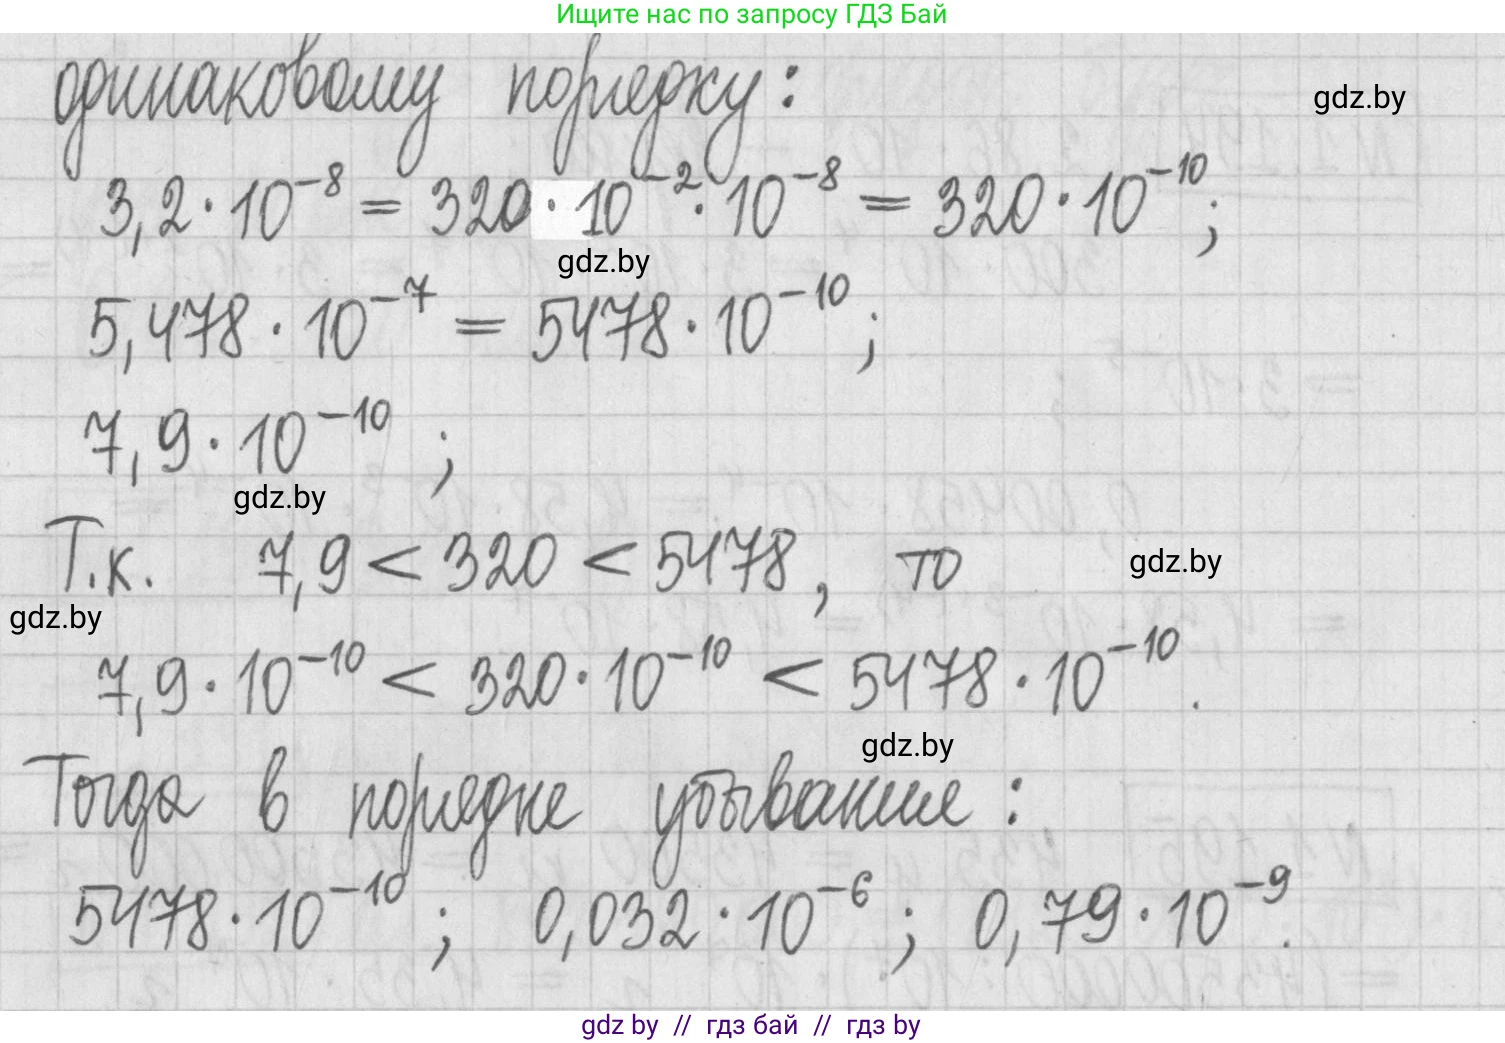 Ищите нас по запросу ГДЗ Бай
одинаковому порядку:
gdz.by
3,2·10⁻⁸ = 320·10⁻²·10⁻⁸ = 320·10⁻¹⁰;
gdz.by
5,478·10⁻⁷ = 5478·10⁻¹⁰;
7,9·10⁻¹⁰;
gdz.by
Т.к. 7,9 < 320 < 5478, то
gdz.by
gdz.by
7,9·10⁻¹⁰ < 320·10⁻¹⁰ < 5478·10⁻¹⁰.
gdz.by
Тогда в порядке убывания:
5478·10⁻¹⁰; 0,032·10⁻⁶; 0,79·10⁻⁹.
gdz by // гдз бай // гдз by